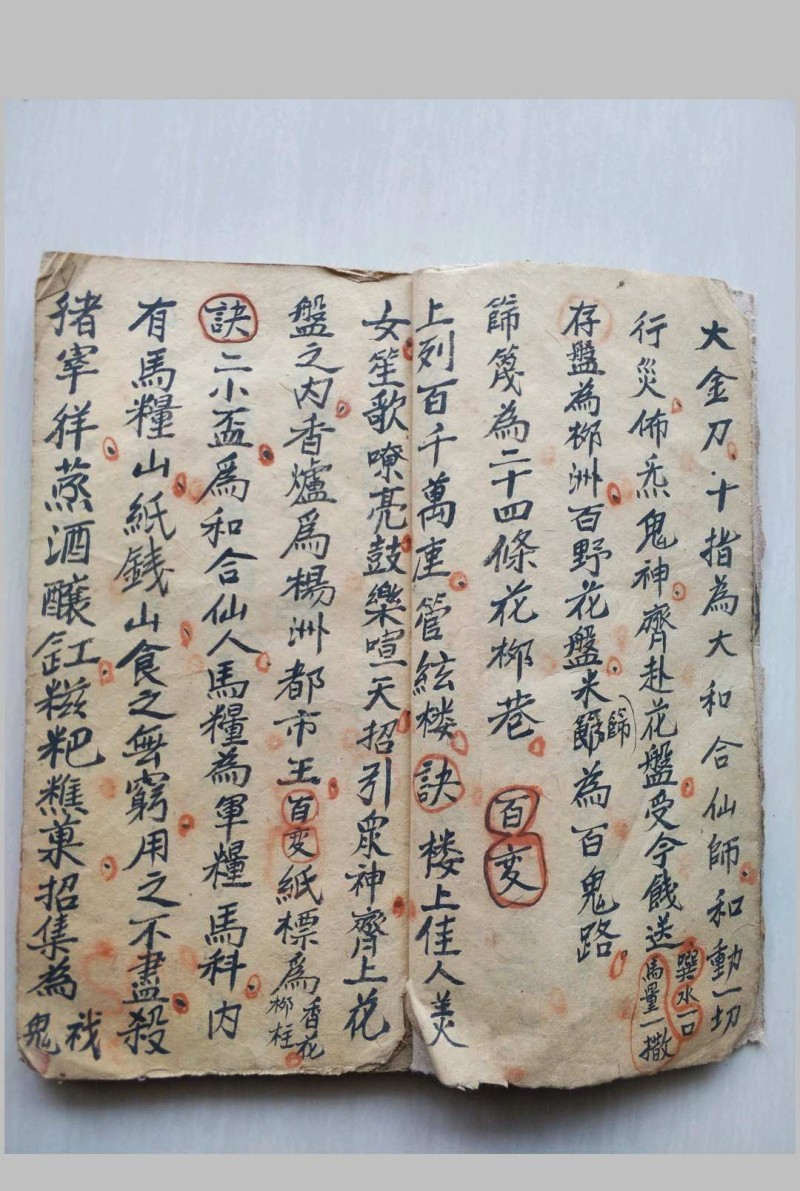 大金刀十指為大和合仙師和動一切
行災佈炁鬼神齊赴花盤受今餞送
噀水一口
馬量一撒
存盤為柳洲百野花盤米篩為百鬼路
篩
篩篾為二十四條花柳巷百变
上列百千萬座管絃楼訣楼上佳人美
女笙歌嘹亮鼓樂喧天招引眾神齊上花
盤之内香爐爲楊洲都市王百变紙標爲
香花
柳柱
訣二小盃爲和合仙人馬糧為軍糧馬科内
有馬糧山紙銭山食之無窮用之不盡殺
猪宰牂蒸酒釀缸糍粑樵菓招集為
鬼